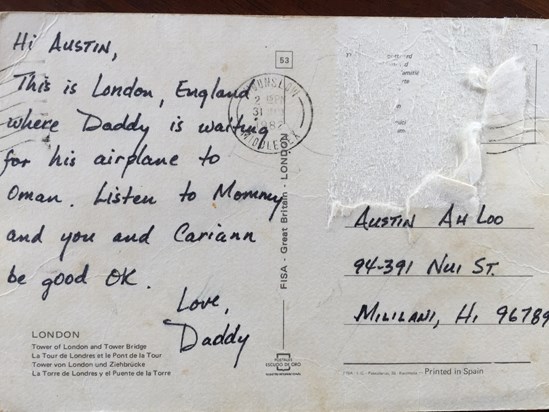 Hi Austin,
This is London, England
where Daddy is waiting
for his airplane to
Oman. Listen to Mommy
and you and Cariann
be good OK.
Love,
Daddy
LONDON
Tower of London and Tower Bridge
La Tour de Londres et le Pont de la Tour
Tower von London und Ziehbrücke
La Torre de Londres y el Puente de la Torre
53
HOUNSLOW
31
1982
MIDDLESEX
FISA - Great Britain - LONDON
POSTALES
ESCUDO DE ORO
Austin Ah Loo
94-391 Nui St.
Mililani, Hi 96789
Printed in Spain